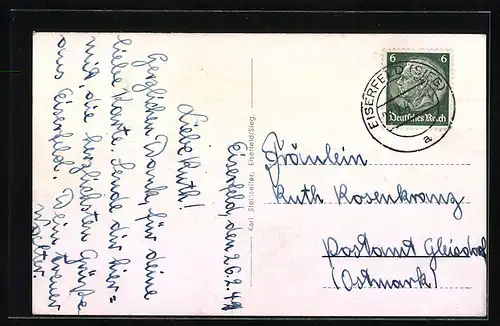 Eiserfeld, den 26.2.41
Liebe Ruth!
Herzlichen Dank, für deine
liebe Karte. Sende dir hier=
mit, die herzlichsten Grüße
aus Eiserfeld. Dein treuer
Walter.
Karl Stellzeller, Eiserfeld/Sieg.
6 6
Deutsches Reich
EISERFELD (SIEG)
a
Fräulein
Ruth Rosenkranz
Postamt Gleisdorf
(Ostmark)